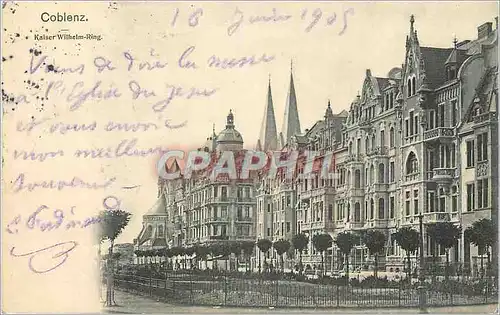 Coblenz.
Kaiser Wilhelm-Ring.
18 Juin 1905
Viens de dire la messe
à l'Eglise du Jesu
et vous envoie
mon meilleur
Souvenir
CPARAMA